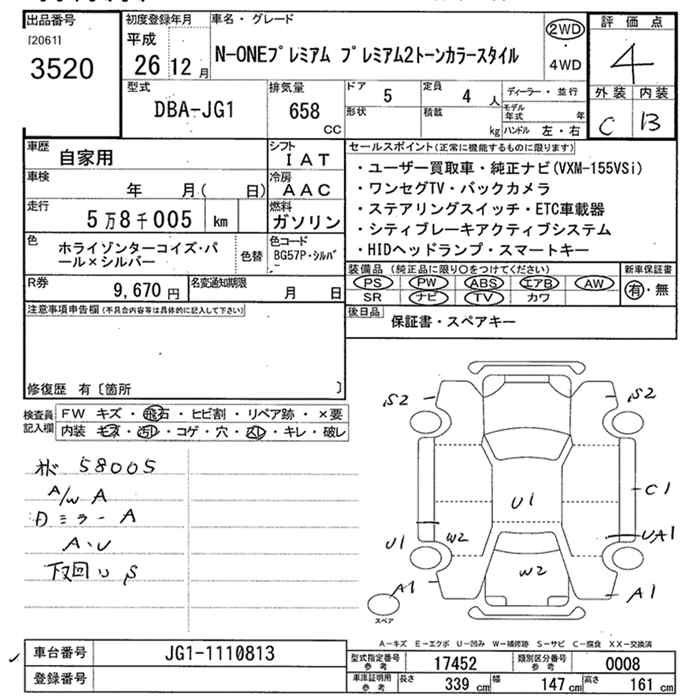 出品番号
[2061]
3520
初度登録年月
平成
26 12 月
車名・グレード
N-ONEプレミアム プレミアム2トーンカラースタイル
2WD
・
4WD
評価点
4
外装 内装
C B
型式
DBA-JG1
排気量
658
CC
ドア
5
定員
4 人
形状
積載
kg
ディーラー・並行
モデル年式 年
ハンドル 左・右
車歴
自家用
シフト
IAT
車検
年 月( 日)
冷房
AAC
走行
5万8千005 km
燃料
ガソリン
色
ホライゾンターコイズ・パール×シルバー
色替
色コード
BG57P・シルバー
R券
9,670 円
名変通知期限
月 日
セールスポイント(正常に機能するものに限ります)
・ユーザー買取車・純正ナビ(VXM-155VSi)
・ワンセグTV・バックカメラ
・ステアリングスイッチ・ETC車載器
・シティブレーキアクティブシステム
・HIDヘッドランプ・スマートキー
装備品(純正品に限り○をつけてください)
PS PW ABS エアB AW
SR ナビ TV カワ
新車保証書
有・無
後日品
保証書・スペアキー
注意事項申告欄(不具合内容等は具体的に記入して下さい)
修復歴 有〔箇所 〕
検査員記入欄
FW キズ・飛石・ヒビ割・リペア跡・×要
内装 キズ・汚レ・コゲ・穴・スレ・キレ・破レ
58005
A/W A
ミラー A
A・U
下回り S
S2
S2
U1
C1
U1
W2
UA1
W2
A1
A1
スペア
A-キズ E-エクボ U-凹み W-補修跡 S-サビ C-腐食 XX-交換済
車台番号
JG1-1110813
登録番号
型式指定番号
参考
17452
類別区分番号
参考
0008
車庫証明用
参考
長さ 339 cm 幅 147 cm 高さ 161 cm